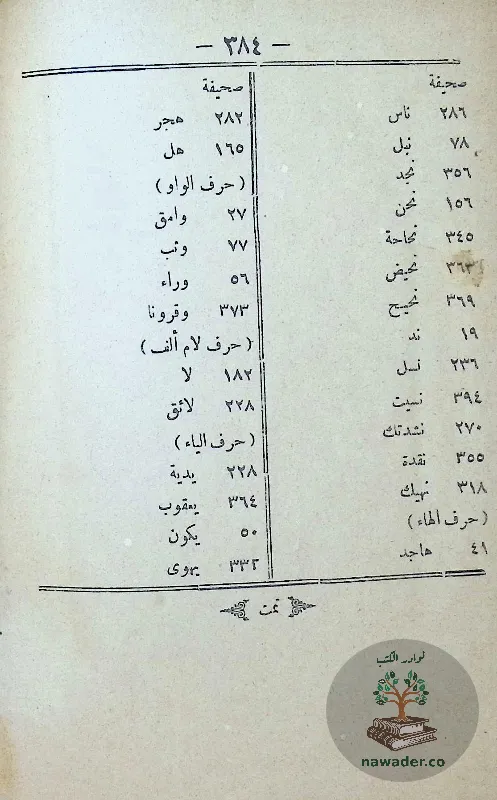 — ٣٨٤ —
صحيفة
٢٨٦ ناس
٧٨ نبل
٣٥٦ نجد
١٥٦ نحن
٣٤٥ نحاحة
٣٦٣ نحيض
٣٦٩ نحيح
١٩ ند
٢٣٦ نسل
٣٩٤ نسيت
٢٧٠ نشدتك
٣٥٥ نقدة
٣١٨ نهيك
(حرف الهاء)
٤١ هاجد
صحيفة
٢٨٢ هجر
١٦٥ هل
(حرف الواو)
٢٧ وامق
٧٧ وثب
٥٦ وراء
٣٧٣ وقرونا
(حرف لام ألف)
١٨٢ لا
٢٢٨ لائق
(حرف الياء)
٢٢٨ يدية
٣٦٤ يعقوب
٥٠ يكون
٣٣٢ يهوى
تمت
نوادر الكتب
nawader.co